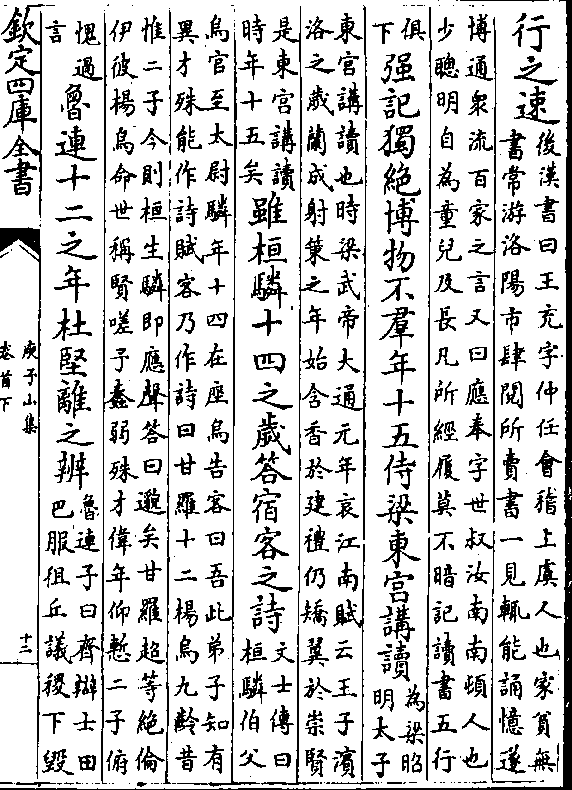 行之速
後漢書曰王充字仲任會稽上虞人也家貧無
書常游洛陽市肆閱所賣書一見輒能誦憶遂
博通衆流百家之言又曰應奉字世叔汝南南頓人也
少聰明自為童兒及長凡所經履莫不暗記讀書五行
俱
下
强記獨絶博物不羣年十五侍梁東宮講讀
為梁昭
明太子
東宮講讀也時梁武帝大通元年哀江南賦云王子濱
洛之歲蘭成射策之年始含香於建禮仍矯翼於崇賢
是東宮講讀
時年十五矣
雖桓驎十四之歲答宿客之詩
文士傳曰
桓驎伯父
烏官至太尉驎年十四在座烏告客曰吾此弟子知有
異才殊能作詩賦客乃作詩曰甘羅十二楊烏九齡昔
惟二子今則桓生驎即應聲答曰邈矣甘羅超等絶倫
伊彼楊烏命世稱賢嗟予蠢弱殊才偉年仰慙二子俯
愧過
言
魯連十二之年杜堅離之辨
魯連子曰齊辯士田
巴服徂丘議稷下毁
欽定四庫全書
庾子山集
卷首下
十三